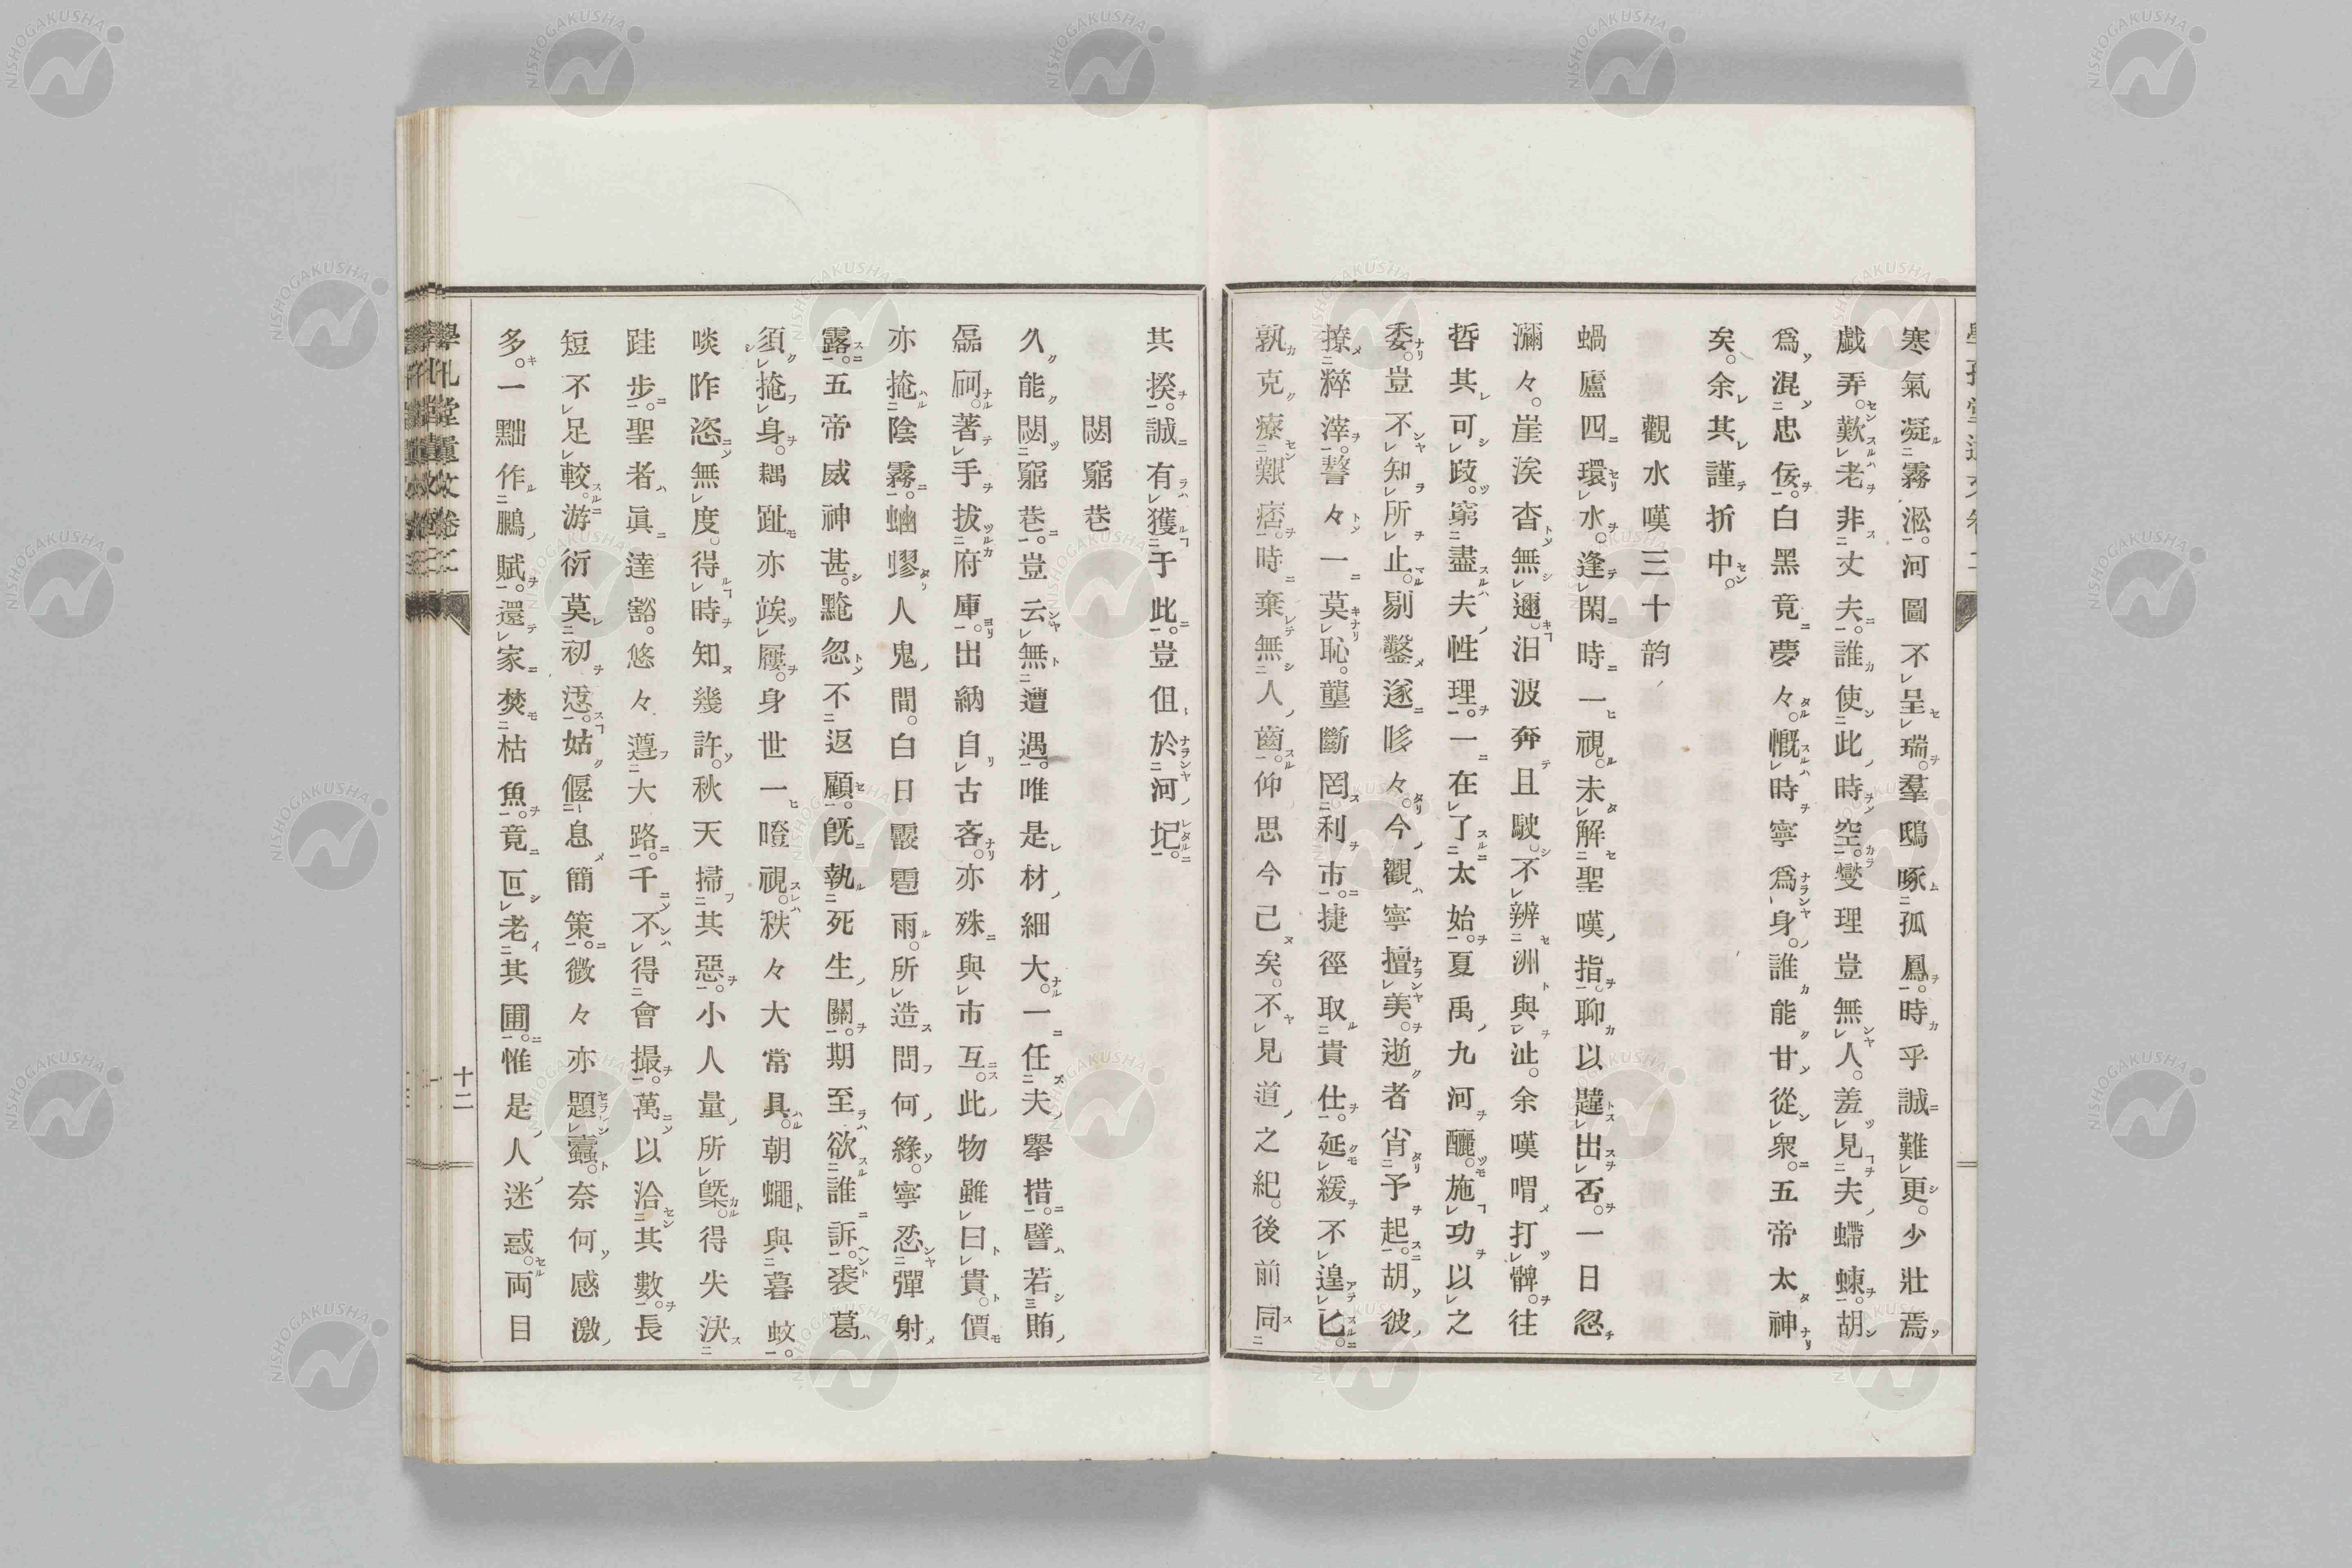 寒氣凝霧淞。河圖不呈瑞。羣鴟啄孤鳳。時乎誠難更。少壯焉
戲弄。歎老非丈夫。誰使此時空。燮理豈無人。羞見夫蝃蝀。胡
爲混忠佞。白黑竟夢々。慨時寧爲身。誰能甘從衆。五帝太神
矣。余其謹折中。
觀水嘆三十韵
蝸廬四環水。逢閑時一視。未解聖嘆指。聊以韙出否。一日忽
瀰々。崖涘杳無邇。汨波奔且駛。不辨洲與沚。余嘆喟打髀。往
哲其可歧。窮盡夫性理。一在了太始。夏禹九河釃。施功以之
委。豈不知所止。剔鑿遂眵々。今觀寧擅美。逝者肖予起。胡彼
撩粹滓。謷々一莫恥。壟斷罔利市。捷徑取貴仕。延緩不遑匕。
孰克療艱痞。時棄無人齒。仰思今已矣。不見道之紀。後前同
其揆。誠有獲于此。豈但於河圮。
閟窮巷
久能閟窮巷。豈云無遭遇。唯是材細大。一任夫擧措。譬若賄
磊砢。著手拔府庫。出納自古吝。亦殊與市互。此物雖曰貴。價
亦掩陰霧。蚴蟉人鬼間。白日霰雹雨。所造問何緣。寧忍彈射
露。五帝威神甚。黤忽不返顧。旣執死生關。期至欲誰訴。裘葛
須掩身。耦趾亦竢屨。身世一瞪視。秩々大常具。朝蠅與暮蚊。
啖阼恣無度。得時知幾許。秋天掃其惡。小人量所槩。得失決
跬步。聖者眞達豁。悠々遵大路。千不得會撮。萬以洽其數。長
短不足較。游衍莫初愆。姑偃息簡策。微々亦題蠧。奈何感激
多。一黜作鵩賦。還家焚枯魚。竟叵老其圃。惟是人迷惑。両目
學孔堂遺文卷二
十二
NISHOGAKUSHA